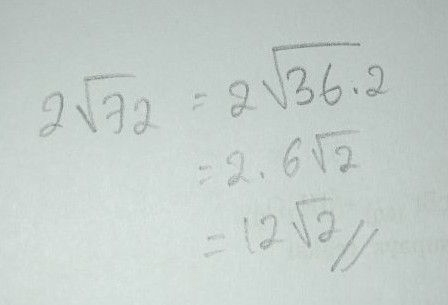 2√72 = 2√36.2
= 2.6√2
= 12√2//